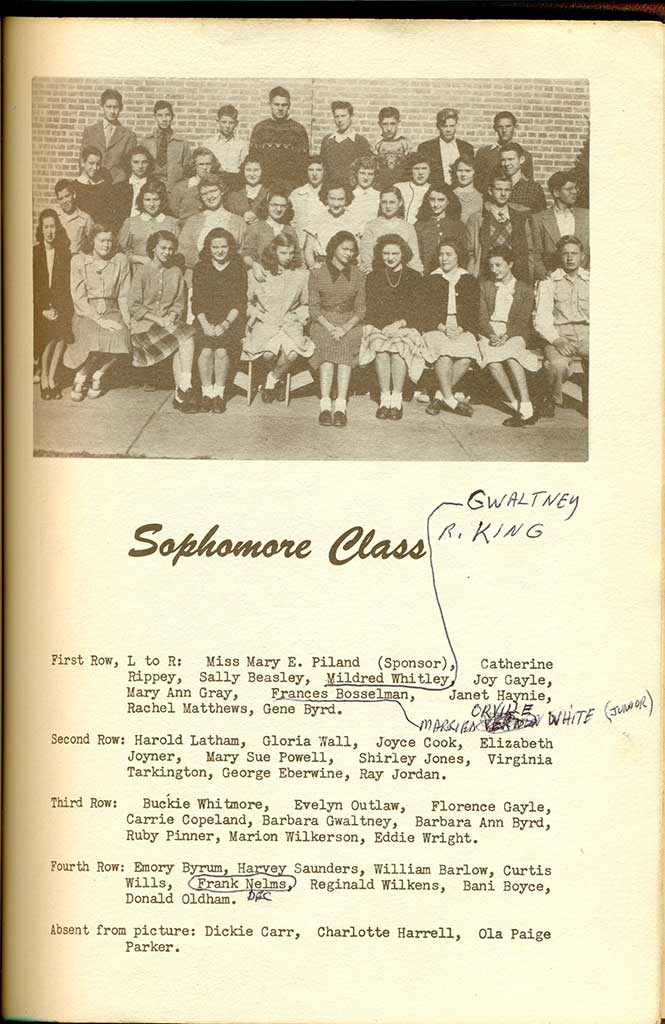 GWALTNEY
R. KING
Sophomore Class
First Row, L to R: Miss Mary E. Piland (Sponsor), Catherine
Rippey, Sally Beasley, Mildred Whitley, Joy Gayle,
Mary Ann Gray, Frances Bosselman, Janet Haynie,
Rachel Matthews, Gene Byrd.
ORVILLE
MARRIED WHITE (JUNIOR)
Second Row: Harold Latham, Gloria Wall, Joyce Cook, Elizabeth
Joyner, Mary Sue Powell, Shirley Jones, Virginia
Tarkington, George Eberwine, Ray Jordan.
Third Row: Buckie Whitmore, Evelyn Outlaw, Florence Gayle,
Carrie Copeland, Barbara Gwaltney, Barbara Ann Byrd,
Ruby Pinner, Marion Wilkerson, Eddie Wright.
Fourth Row: Emory Byrum, Harvey Saunders, William Barlow, Curtis
Wills, Frank Nelms, Reginald Wilkens, Bani Boyce,
Donald Oldham. DEC
Absent from picture: Dickie Carr, Charlotte Harrell, Ola Paige
Parker.